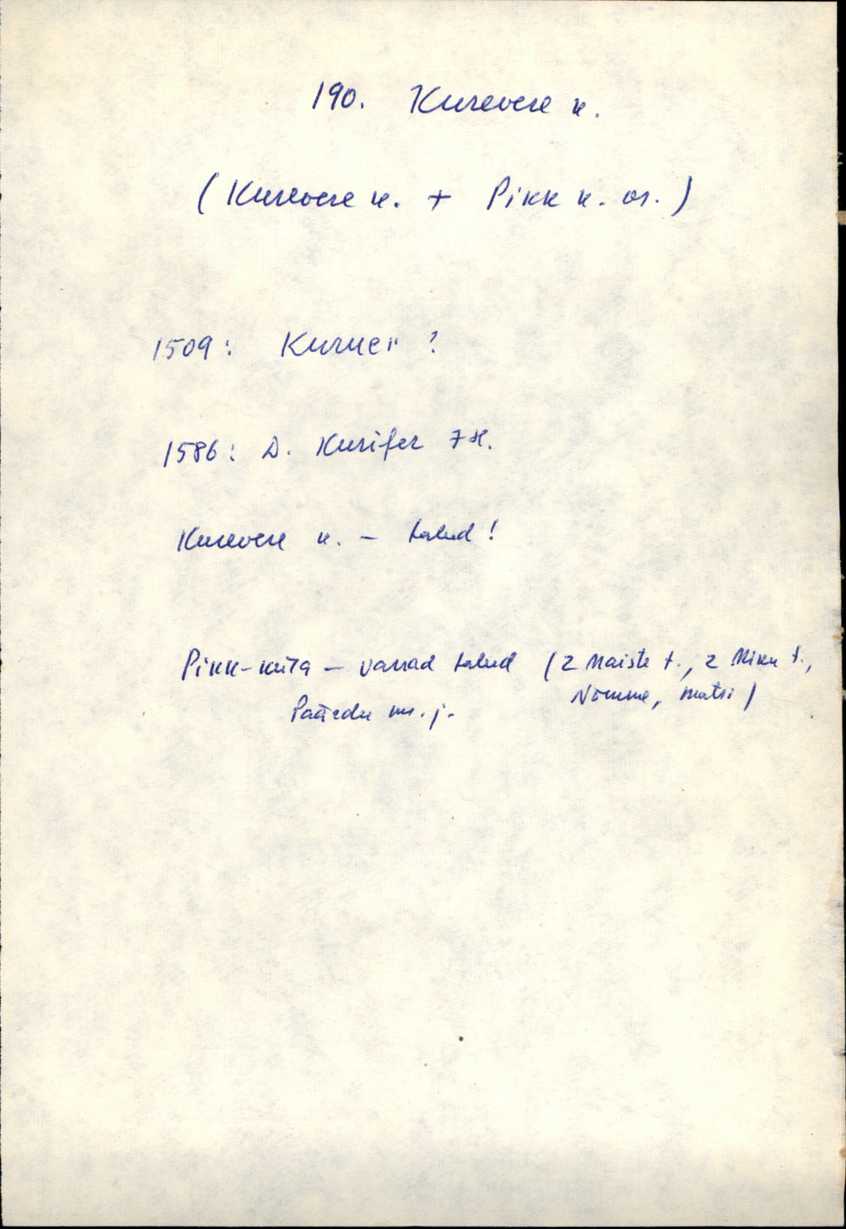 190. Kurevere k.
(Kurevere k. + Pikk k. os.)
1509: Kurver ?
1586: D. Kurifer 7 H.
Kurevere k. – talud!
Pikk-küla – vanad talud (2 Maiste t., 2 Miku t.,
Nõmme, Matsi)
Paäedu m. j.